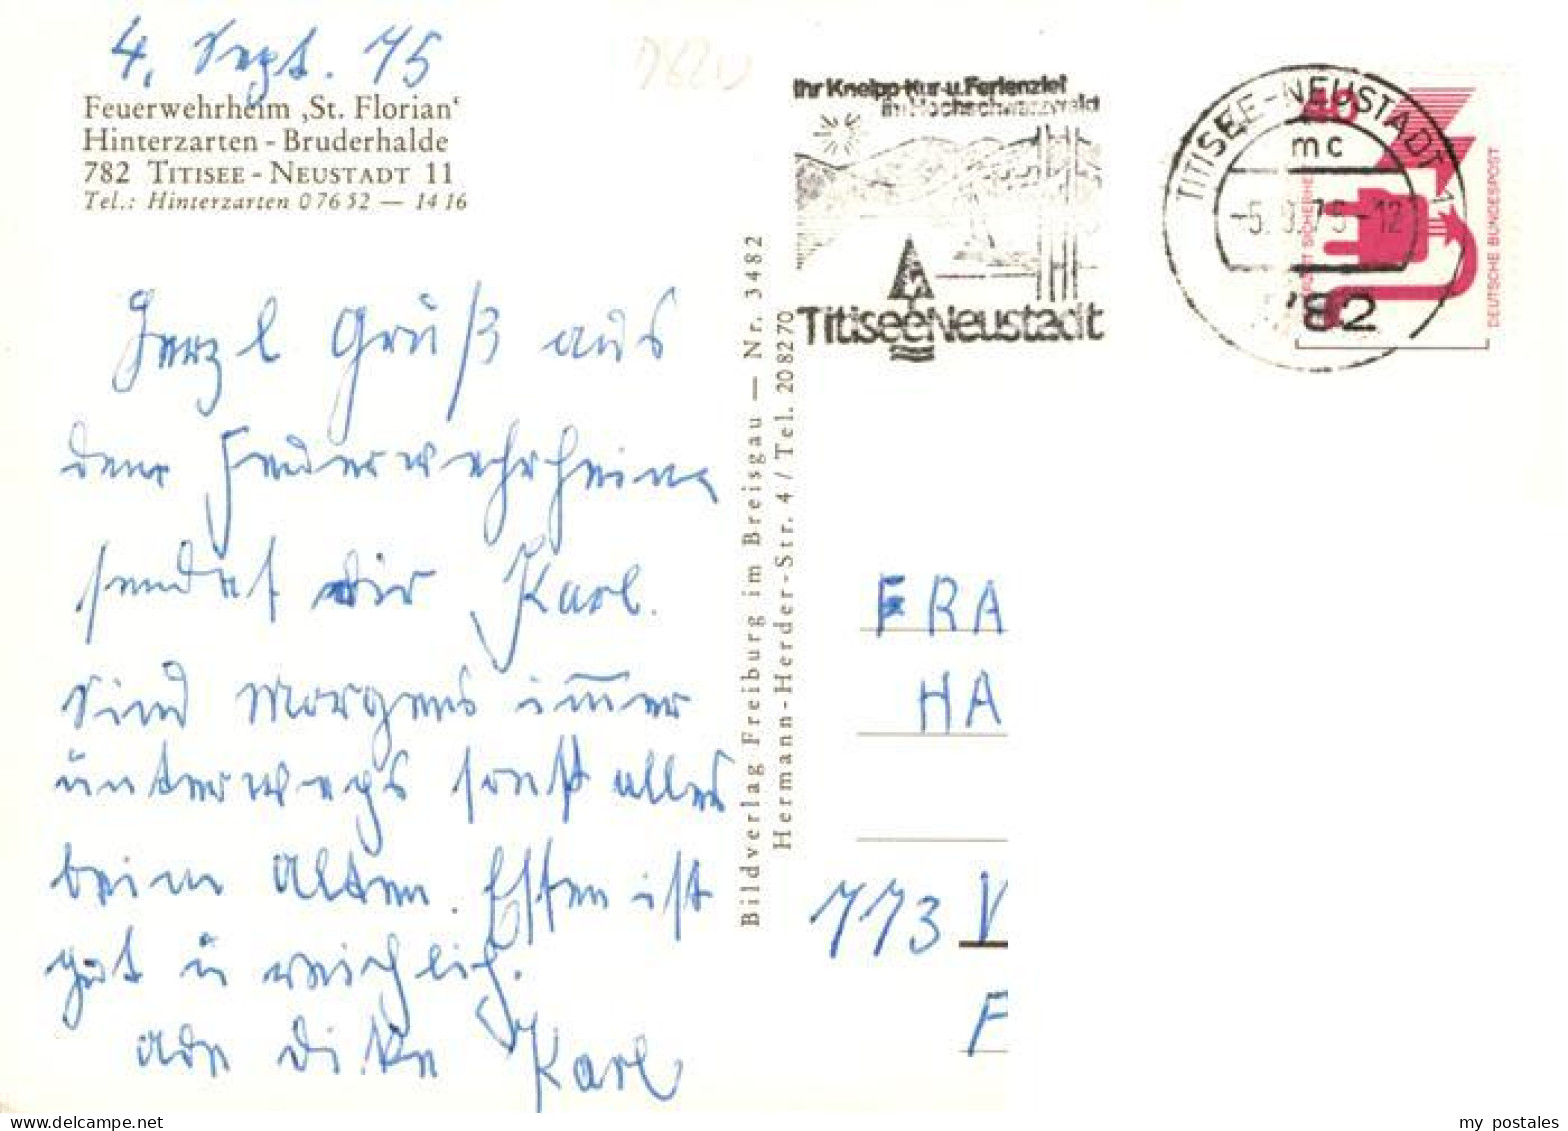 4. Sept. 75
Feuerwehrheim ‚St. Florian‘
Hinterzarten - Bruderhalde
782 TITISEE - NEUSTADT 11
Tel.: Hinterzarten 07652 — 1416
Herzl Gruß aus
dem Feuerwehrheim
sendet dir Karl.
Sind Morgens im̅er
unterwegs sonst alles
beim Alten. Essen ist
gut u reichlich.
Karl
Bildverlag Freiburg im Breisgau — Nr. 3482
Hermann-Herder-Str. 4 / Tel. 208270
Ihr Kneipp-Kur-u.Ferienziel
im Hochschwarzwald
Titisee Neustadt
TITISEE-NEUSTADT 1
mc
-5. 9. 75-12
782
DEUTSCHE BUNDESPOST
FRA
HA
773 V
F
my postales